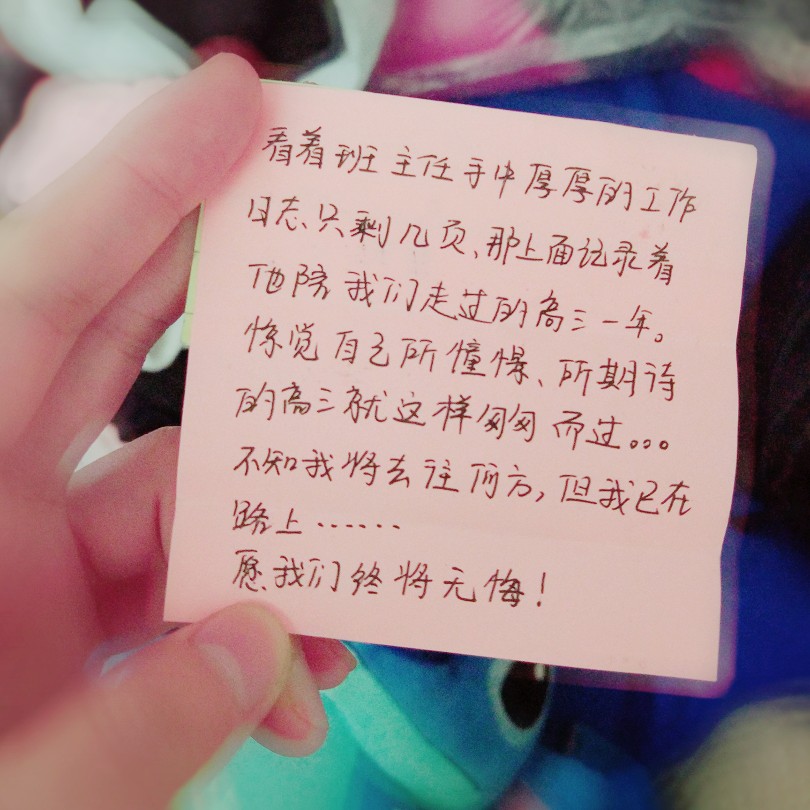 看着班主任手中厚厚的工作
日志只剩几页、那上面记录着
他陪我们走过的高三一年。
惊觉自己所憧憬、所期待
的高三就这样匆匆而过。。。
不知我将去往何方,但我已在
路上……
愿我们终将无悔!